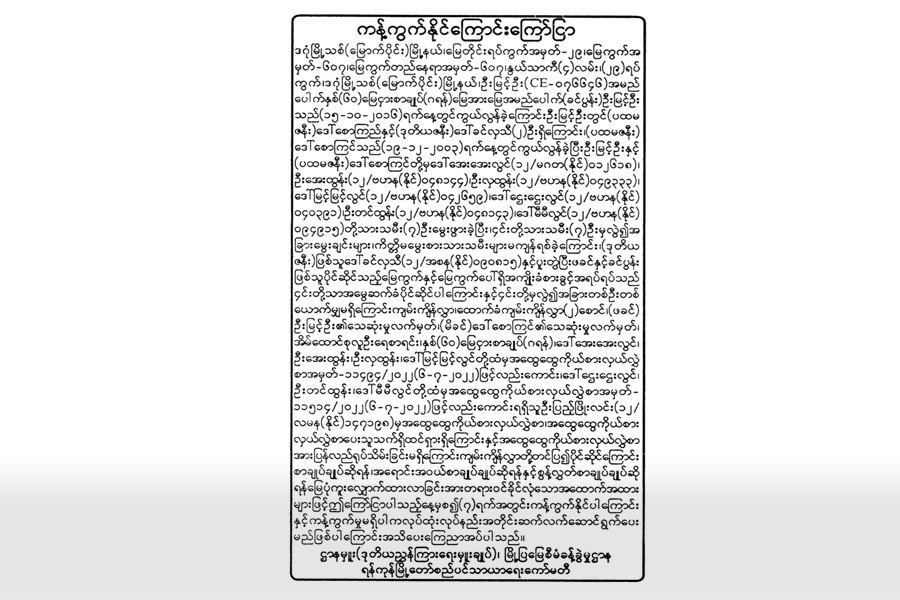 ကန့်ကွက်နိုင်ကြောင်းကြော်ငြာ
ဒဂုံမြို့သစ်(မြောက်ပိုင်း)မြို့နယ်၊မြေတိုင်းရပ်ကွက်အမှတ်-၂၉၊မြေကွက်အ
မှတ်-၆၀၇၊မြေကွက်တည်နေရာအမှတ်-၆၀၇၊နွယ်သာကီ(၄)လမ်း၊(၂၉)ရပ်
ကွက်၊ဒဂုံမြို့သစ်(မြောက်ပိုင်း)မြို့နယ်၊ဦးမြင့်ဦး(CE-၀၇၆၆၄၆)အမည်
ပေါက်နှစ်(၆၀)မြေငှားစာချုပ်(ဂရန်)မြေအားမြေအမည်ပေါက်(ခင်ပွန်း)ဦးမြင့်ဦး
သည်(၁၅-၁၀-၂၀၁၆)ရက်နေ့တွင်ကွယ်လွန်ခဲ့ကြောင်းဦးမြင့်ဦးတွင်(ပထမ
ဇနီး)ဒေါ်စောကြည်နှင့်(ဒုတိယဇနီး)ဒေါ်ခင်လှသီ(၂)ဦးရှိကြောင်း၊(ပထမဇနီး)
ဒေါ်စောကြင်သည်(၁၉-၁၂-၂၀၀၃)ရက်နေ့တွင်ကွယ်လွန်ခဲ့ပြီးဦးမြင့်ဦးနှင့်
(ပထမဇနီး)ဒေါ်စောကြင်တို့မှဒေါ်အေးအေးလွင်(၁၂/မဂတ(နိုင်)၀၁၂၆၁၈)၊
ဦးအေးထွန်း(၁၂/ဗဟန(နိုင်)၀၄၈၁၄၄)၊ဦးလှထွန်း(၁၂/ဗဟန(နိုင်)၀၄၉၃၃၃)၊
ဒေါ်မြင့်မြင့်လွင်(၁၂/ဗဟန(နိုင်)၀၄၂၆၅၉)၊ဒေါ်ဌေးဌေးလွင်(၁၂/ဗဟန(နိုင်)
၀၄၀၃၉၁)ဦးတင်ထွန်း(၁၂/ဗဟန(နိုင်)၀၄၈၁၄၃)၊ဒေါ်မီမီလွင်(၁၂/ဗဟန(နိုင်)
၀၉၄၉၁၅)တို့သားသမီး(၇)ဦးမွေးဖွားခဲ့ပြီး၊၄င်းတို့သားသမီး(၇)ဦးမှလွဲ၍အ
ခြားမွေးချင်းများ၊ကိတ္တိမမွေးစားသားသမီးများမကျန်ရစ်ခဲ့ကြောင်း၊(ဒုတိယ
ဇနီး)ဖြစ်သူဒေါ်ခင်လှသီ(၁၂/အစန(နိုင်)၀၉၀၈၁၅)နှင့်ပူးတွဲပြီးဖခင်နှင့်ခင်ပွန်း
ဖြစ်သူပိုင်ဆိုင်သည့်မြေကွက်နှင့်မြေကွက်ပေါ်ရှိအကျိုးခံစားခွင့်အရပ်ရပ်သည်
၄င်းတို့သာအမွေဆက်ခံပိုင်ဆိုင်ပါကြောင်းနှင့်၄င်းတို့မှလွဲ၍အခြားတစ်ဦးတစ်
ယောက်မျှမရှိကြောင်းကျမ်းကျိန်လွှာ၊ထောက်ခံကျမ်းကျိန်လွှာ(၂)စောင်၊(ဖခင်)
ဦးမြင့်ဦး၏သေဆုံးမှုလက်မှတ်၊(မိခင်)ဒေါ်စောကြင်၏သေဆုံးမှုလက်မှတ်၊
အိမ်ထောင်စုလူဦးရေစာရင်း၊နှစ်(၆၀)မြေငှားစာချုပ်(ဂရန်)၊ဒေါ်အေးအေးလွင်၊
ဦးအေးထွန်း၊ဦးလှထွန်း၊ဒေါ်မြင့်မြင့်လွင်တို့ထံမှအထွေထွေကိုယ်စားလှယ်လွှဲ
စာအမှတ်-၁၁၄၉၄/၂၀၂၂(၆-၇-၂၀၂၂)ဖြင့်လည်းကောင်း၊ဒေါ်ဌေးဌေးလွင်၊
ဦးတင်ထွန်း၊ဒေါ်မီမီလွင်တို့ထံမှအထွေထွေကိုယ်စားလှယ်လွှဲစာအမှတ်-
၁၁၅၁၄/၂၀၂၂(၆-၇-၂၀၂၂)ဖြင့်လည်းကောင်းရရှိသူဦးပြည့်ဖြိုးလင်း(၁၂/
လမန(နိုင်)၁၄၇၁၉၈)မှအထွေထွေကိုယ်စားလှယ်လွှဲစာ၊အထွေထွေကိုယ်စား
လှယ်လွှဲစာပေးသူသက်ရှိထင်ရှားရှိကြောင်းနှင့်အထွေထွေကိုယ်စားလှယ်လွှဲစာ
အားပြန်လည်ရုပ်သိမ်းခြင်းမရှိကြောင်းကျမ်းကျိန်လွှာတို့တင်ပြ၍ပိုင်ဆိုင်ကြောင်း
စာချုပ်ချုပ်ဆိုရန်၊အရောင်းအဝယ်စာချုပ်ချုပ်ဆိုရန်နှင့်စွန့်လွှတ်စာချုပ်ချုပ်ဆို
ရန်မြေပုံကူးလျှောက်ထားလာခြင်းအားတရားဝင်ခိုင်လုံသောအထောက်အထား
များဖြင့်ဤကြော်ငြာပါသည့်နေ့မှစ၍(၇)ရက်အတွင်းကန့်ကွက်နိုင်ပါကြောင်း
နှင့်ကန့်ကွက်မှုမရှိပါကလုပ်ထုံးလုပ်နည်းအတိုင်းဆက်လက်ဆောင်ရွက်ပေး
မည်ဖြစ်ပါကြောင်းအသိပေးကြေညာအပ်ပါသည်။
ဌာနမှူး(ဒုတိယညွှန်ကြားရေးမှူးချုပ်)၊ မြို့ပြမြေစီမံခန့်ခွဲမှုဌာန
ရန်ကုန်မြို့တော်စည်ပင်သာယာရေးကော်မတီ